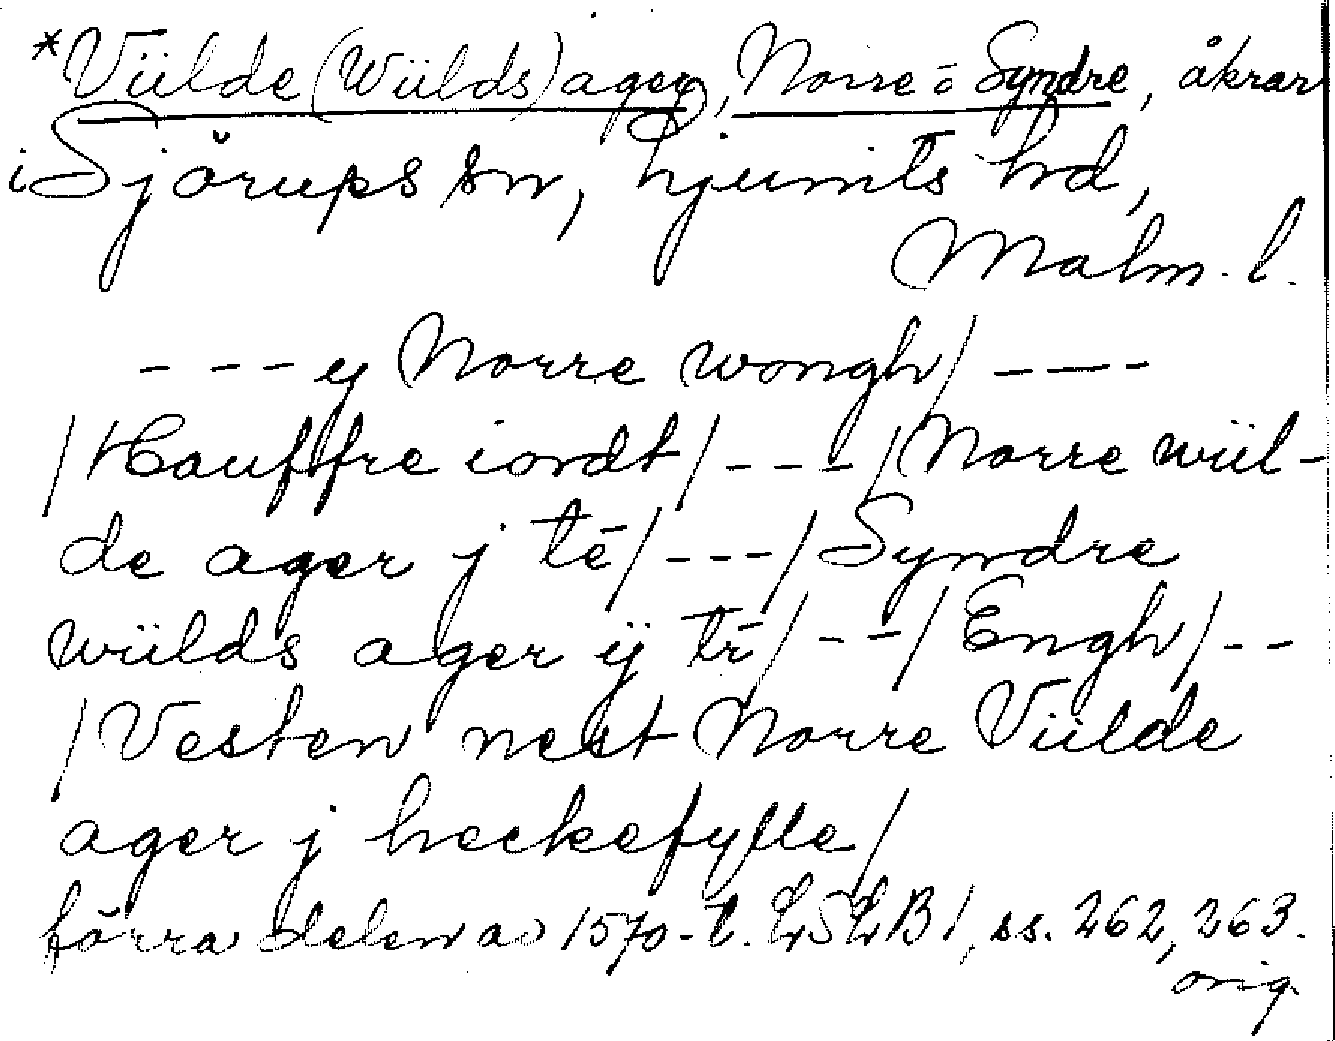 *Viilde (Wiilds) ager, Norre- o Syndre, åkrar
i Sjörups sn, hjunits hd,
Malm. l.
- - - ej Norre wongh / - - - -
/ Hauffre iordt / - - - / Norre wiil-
de ager j té / - - - / Syndre
wiilds ager ij tr / - - / Engh / - -
/ Vesten nest Norre Viilde
ager j heckefylle /
förra delen av 1570-t. LSLB 1, ss. 262, 263.
orig.